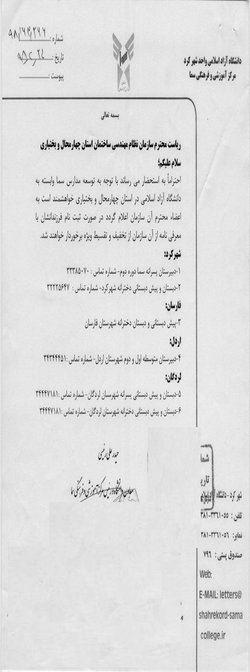 دانشگاه آزاد اسلامی واحد شهر کرد
مرکز آموزشی و فرهنگی سما
شماره:
تاریخ:
پیوست:
بسمه تعالی
ریاست محترم سازمان نظام مهندسی ساختمان استان چهارمحال و بختیاری
سلام علیکم؛
احتراماً به استحضار می رساند با توجه به توسعه مدارس سما وابسته به
دانشگاه آزاد اسلامی در استان چهارمحال و بختیاری خواهشمند است به
اعضاء محترم آن سازمان اعلام گردد در صورت ثبت نام فرزندانشان با
معرفی نامه از آن سازمان از تخفیف و تقسیط ویژه برخوردار خواهند شد.
شهرکرد:
۱-دبیرستان پسرانه سما دوره دوم - شماره تماس : ۳۳۳۸۵۰۷۰
۲-دبستان و پیش دبستانی دخترانه شهرکرد- شماره تماس : ۳۲۲۲۵۶۴۷
فارسان:
۳-پیش دبستانی و دبستان دخترانه شهرستان فارسان
اردل:
۴-دبیرستان متوسطه اول و دوم شهرستان اردل- شماره تماس: ۳۴۳۴۴۴۵۱
لردگان:
۵-دبستان و پیش دبستانی پسرانه شهرستان لردگان- شماره تماس: ۳۴۴۴۷۱۸۱
۶-دبستان و پیش دبستانی دخترانه شهرستان لردگان- شماره تماس: ۳۴۴۴۷۱۸۱
شما
تاری
شهر کرد - دانشگاه آزاد اسلامی
تلفن: ۳۳۶۱۰۵۵-۰۳۸۱
نمابر: ۳۳۶۱۰۵۶-۰۳۸۱
صندوق پستی: ۷۹۶
Web:
E-MAIL: letters@
shahrekord-sama
college.ir